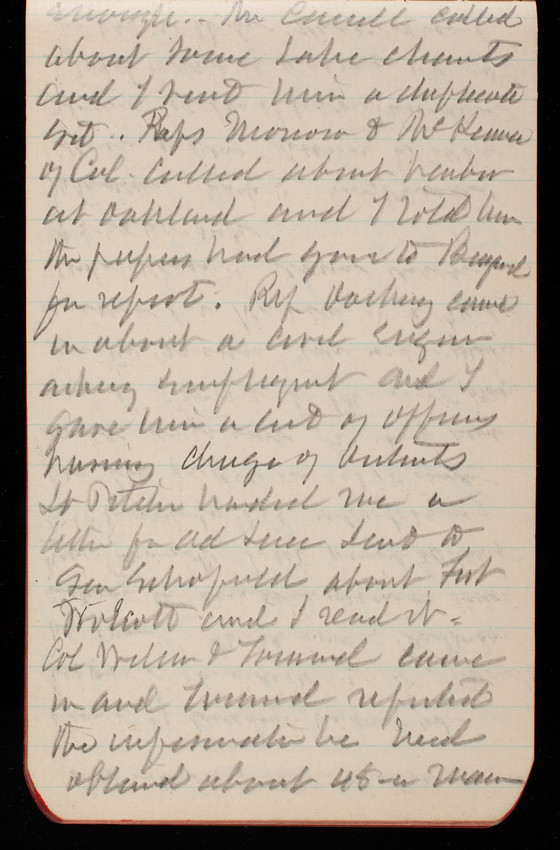 enough. - Mr Carrell called
about some Lake charts
and I sent him a duplicate
set. Reps Morrow & McKenna
of Cal. called about harbor
at Oakland and I told him
the papers had gone to Board
for report. Rep Dockery came
in about a civil Engin
asking employment and I
gave him a list of officers
having charge of districts
Lt Pitcher handed me a
letter for Ad Sec send to
Gen Schofield about Fort
Wolcott and I read it -
Col Wilson & Townsend came
in and reported
the information he had
obtained about a man